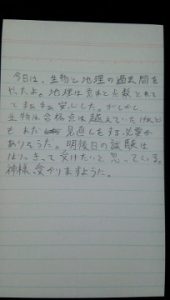 今日は、生物と地理の過去問を
やったよ。地理は克れと点数とれて
てまあまあ安心した。しかし、
生物は合格点は越えていたけれど
もまだ見直しをする必要が
ありそうだ。明後日の試験は
はりきって受けたいと思っている。
神様、受かりますように。